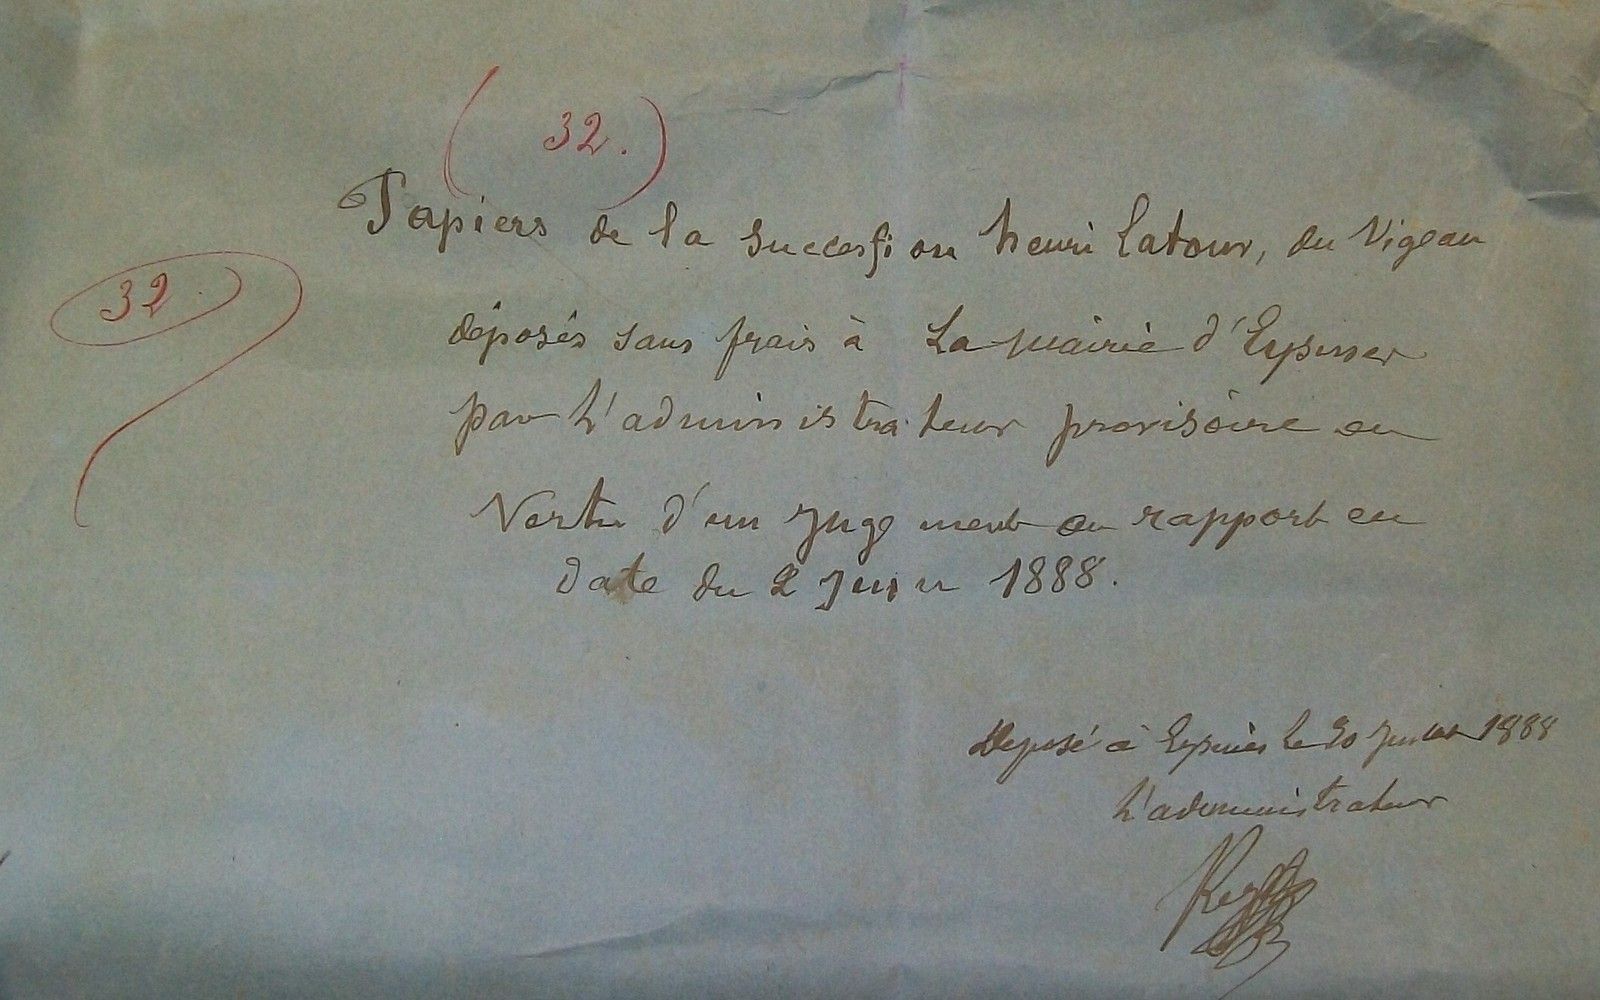 (32.)
Papiers de la Succession henri Latour, du Vigean
32.
déposés sans frais à La Mairie d'Eysines
par L'administrateur provisoire en
Vertu d'un Jugement ou rapport en
Date du 2 Juin 1888.
Deposé à Eysines le 20 Juillet 1888
L'administrateur